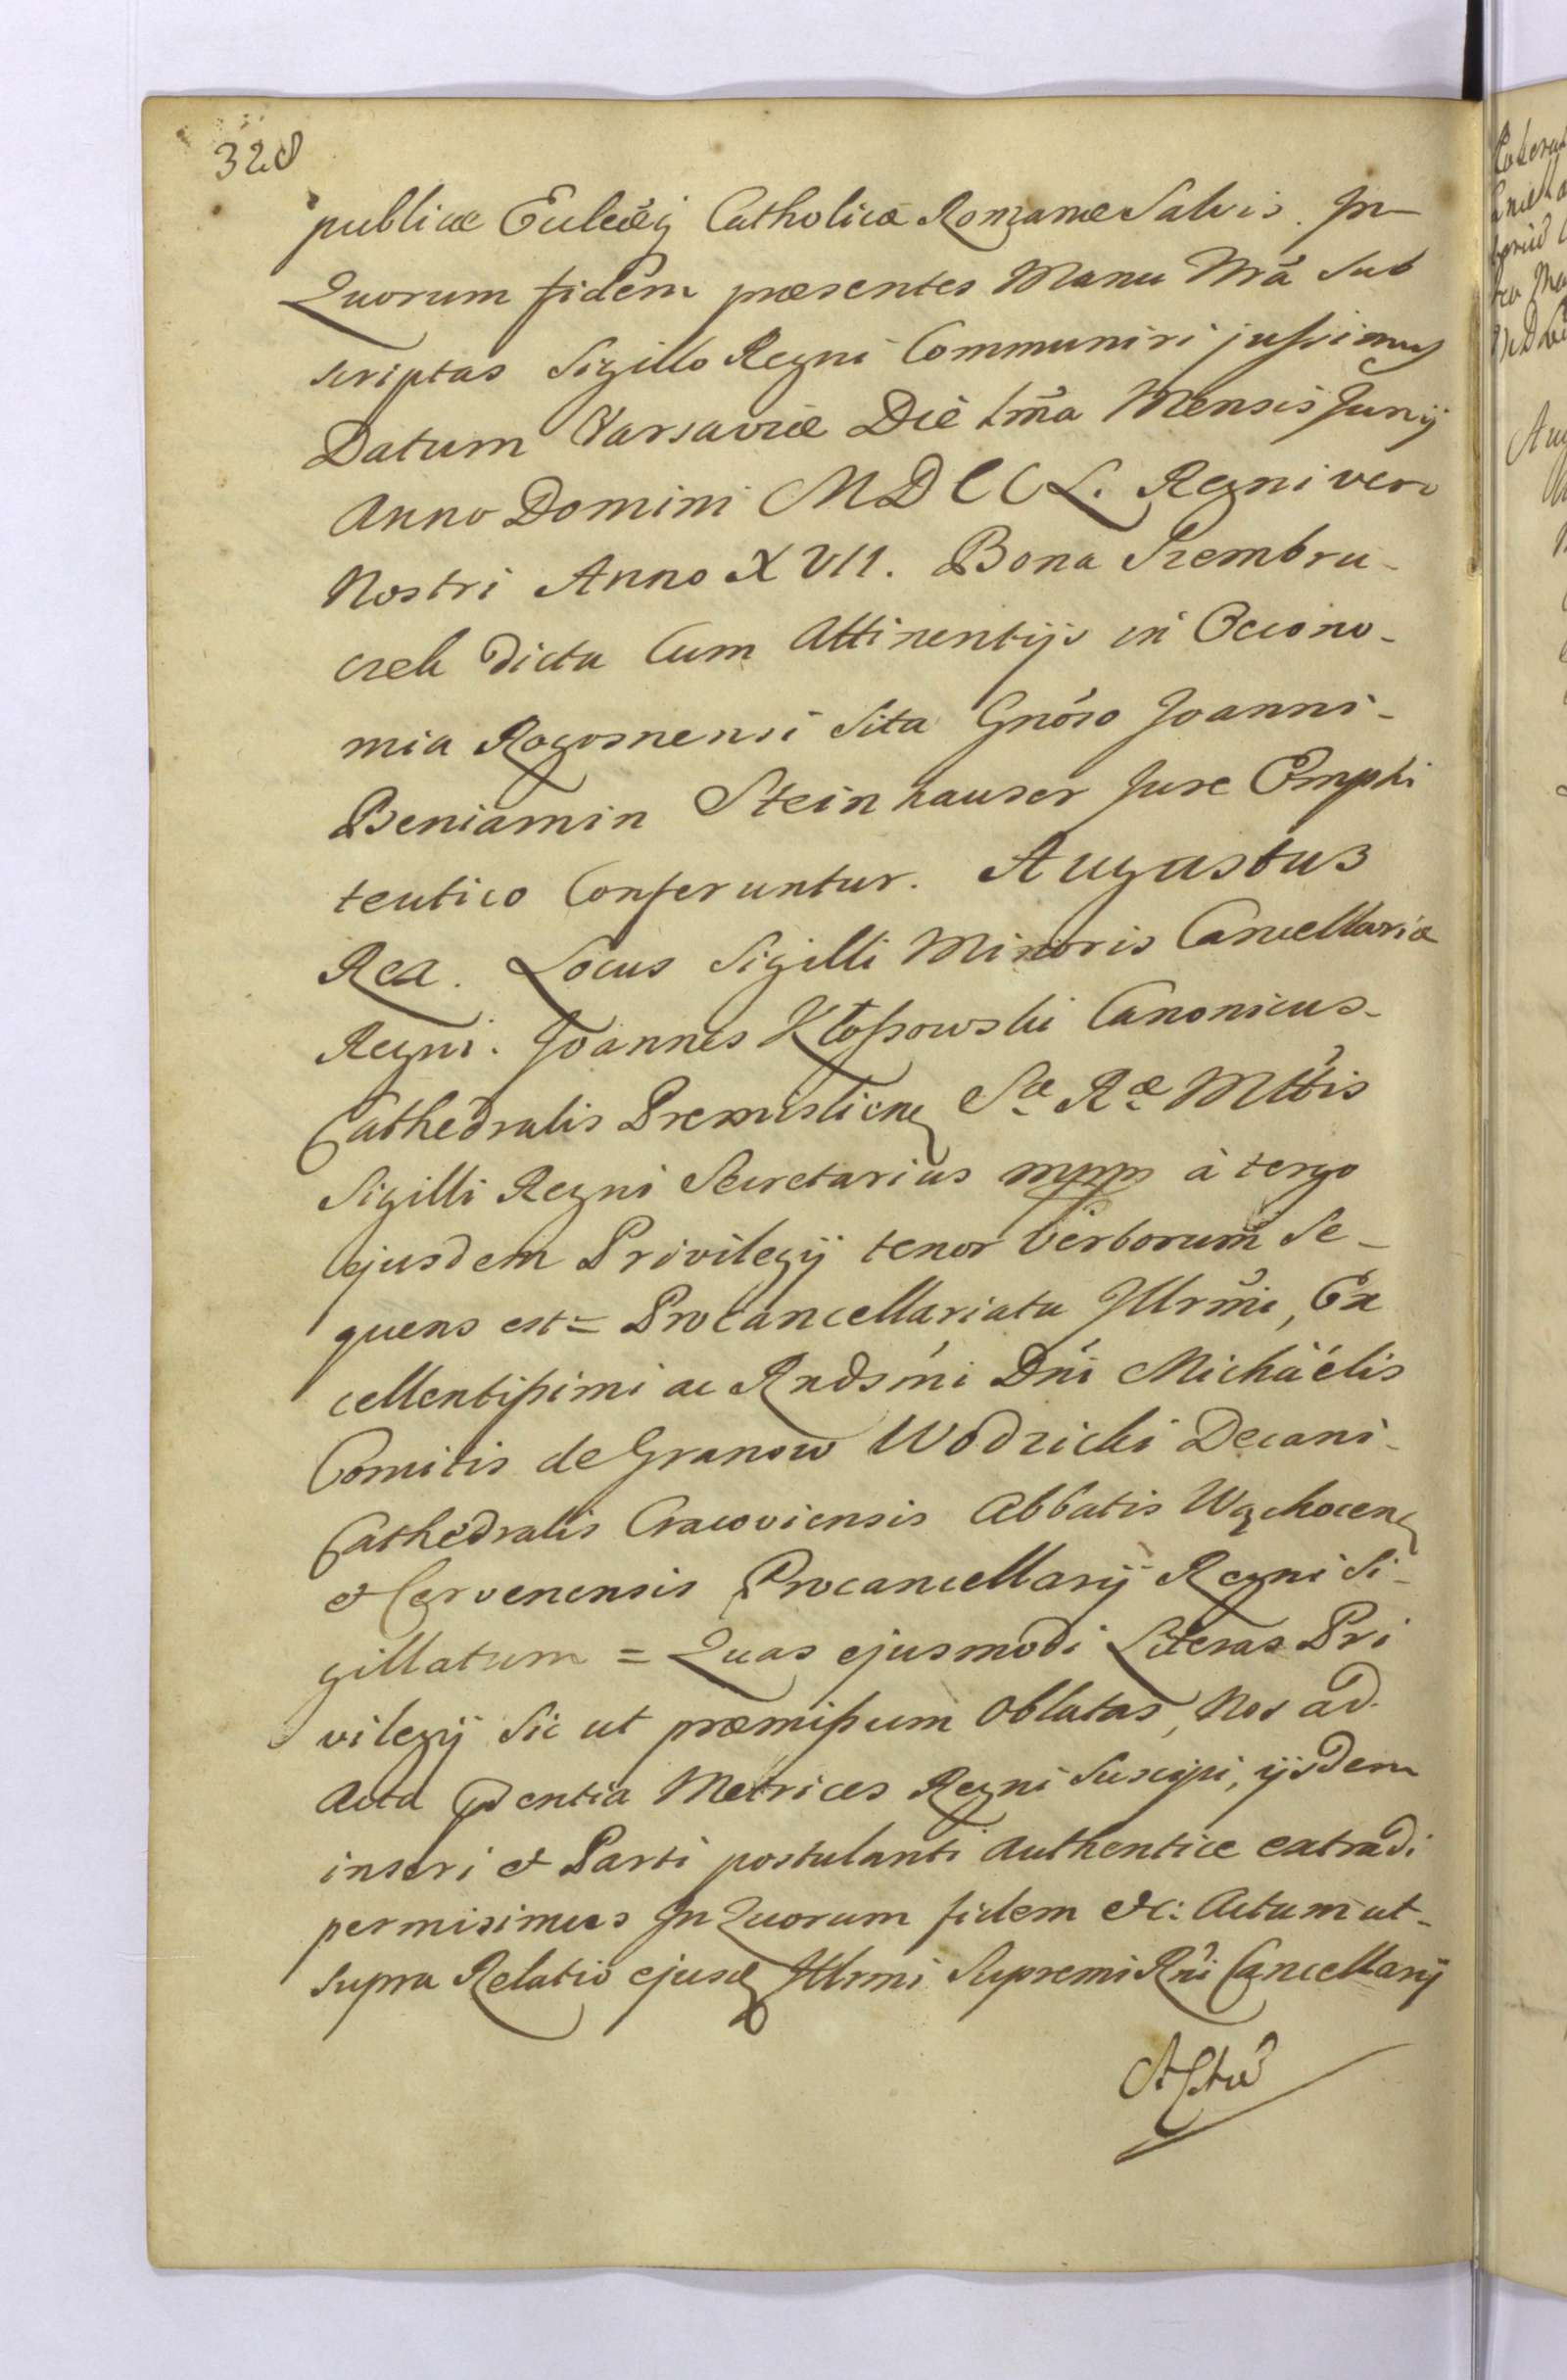 328
publicæ Eccleæq Catholicæ Romanæ Salvis. In
Quorum fidem præsentes Manu Nrã Sub
scriptas Sigillo Regni Communiri jussimus
Datum Varsaviæ Die Ima Mensis Junij
Anno Domini MDCCL. Regni vero
Nostri Anno XVII. Bona Szembru-
czek dicta Cum Attinentijs in Oecono-
mia Rogosnensi Sita Gnoso Joanni-
Beniamin Steinhauser Jure Emphi
teutico Conferuntur. Augustus
Rex. Locus Sigilli Minoris Cancellariæ
Regni. Joannes Kłossowski Canonicus-
Cathedralis Premislien Sæ Ræ Mttis
Sigilli Regni Secretarius mpp à tergo
ejusdem Privilegij tenor Verborum Se-
quens est = Procancellariatu Illrmi, Ex
cellentissimi ac Rndsmi Dni Michäélis
Comitis de Granow Wodzicki Decani-
Cathedralis Cracoviensis Abbatis Wąchocen
et Czervenensis Procancellarij Regni Si-
gillatum = Quas ejusmodi Literas Pri
vilegij Sic ut præmissum Oblatas, Nos ad
Acta Metrices Regni Suscipi, ijsdem
inseri et Parti postulanti Authentice extradi
permisimus In Quorum fidem etc: Actum ut-
supra Relatio ejusd Illrmi Supremi Rni Cancellarij